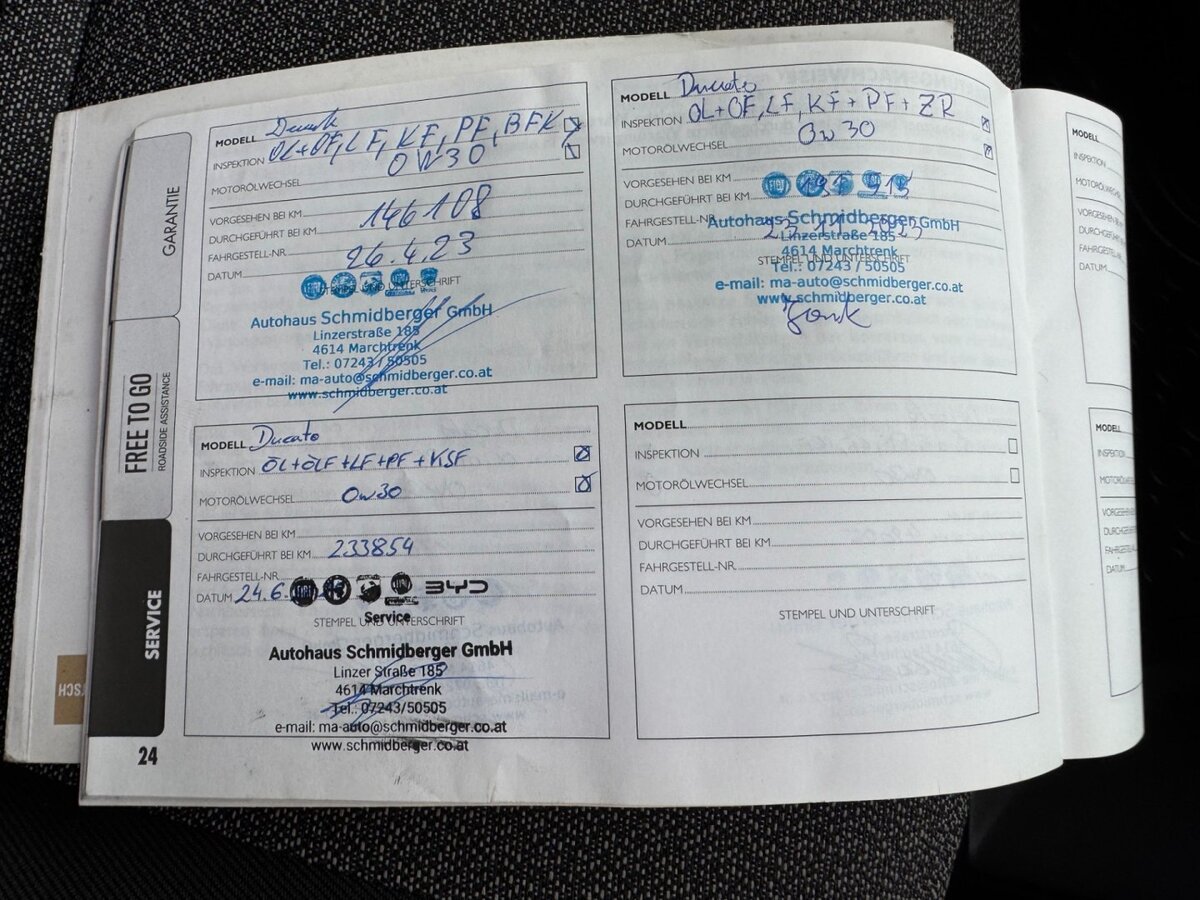 GARANTIE
FREE TO GO
ROADSIDE ASSISTANCE
SERVICE
24
MODELL
INSPEKTION ÖL+ÖF, LF, KF, PF, BFK
MOTORÖLWECHSEL 0W30
VORGESEHEN BEI KM
DURCHGEFÜHRT BEI KM 146108
FAHRGESTELL-NR.
DATUM 26.4.23
STEMPEL UND UNTERSCHRIFT
Autohaus Schmidberger GmbH
Linzerstraße 185
4614 Marchtrenk
Tel.: 07243 / 50505
e-mail: ma-auto@schmidberger.co.at
www.schmidberger.co.at
MODELL Ducato
INSPEKTION ÖL+ÖF, LF, KF + PF + ZR
MOTORÖLWECHSEL 0w30
VORGESEHEN BEI KM
DURCHGEFÜHRT BEI KM
FAHRGESTELL-NR.
DATUM
STEMPEL UND UNTERSCHRIFT
Autohaus Schmidberger GmbH
Linzerstraße 185
4614 Marchtrenk
Tel.: 07243 / 50505
e-mail: ma-auto@schmidberger.co.at
www.schmidberger.co.at
MODELL Ducato
INSPEKTION ÖL+ÖLF+LF+PF+KSF
MOTORÖLWECHSEL 0w30
VORGESEHEN BEI KM
DURCHGEFÜHRT BEI KM 233854
FAHRGESTELL-NR.
DATUM 24.6.
BYD
Service
STEMPEL UND UNTERSCHRIFT
Autohaus Schmidberger GmbH
Linzer Straße 185
4614 Marchtrenk
Tel.: 07243/50505
e-mail: ma-auto@schmidberger.co.at
www.schmidberger.co.at
MODELL
INSPEKTION
MOTORÖLWECHSEL
VORGESEHEN BEI KM
DURCHGEFÜHRT BEI KM
FAHRGESTELL-NR.
DATUM
STEMPEL UND UNTERSCHRIFT
MODELL
INSPEKTION
DATUM
MODELL
INSPEKTION
DATUM